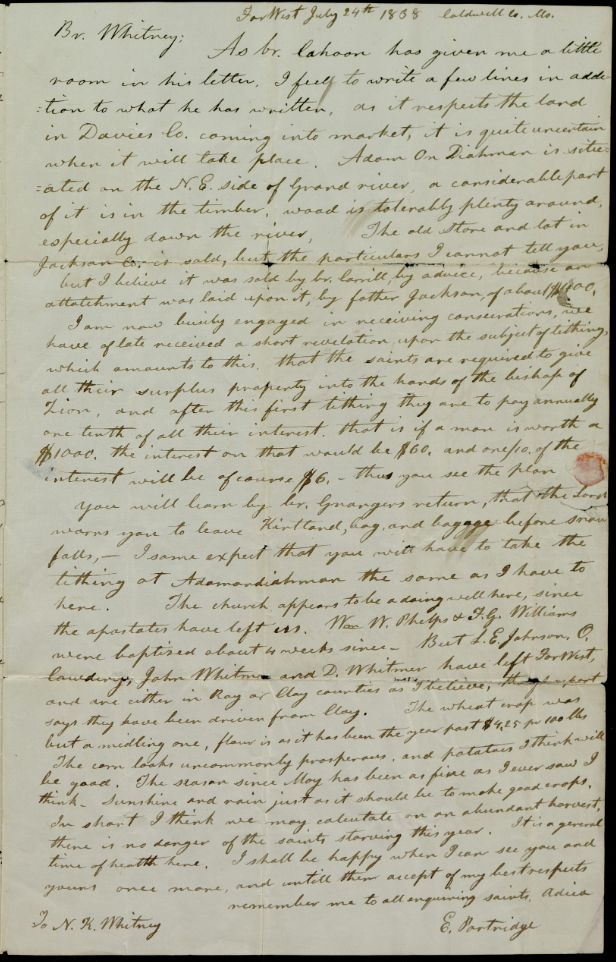 Far West July 24th 1838 Caldwell Co. Mo.
Br. Whitney;
As br. Cahoon has given me a little
room in his letter, I feel to write a few lines in addi-
=tion to what he has written, as it respects the land
in Davies Co. coming into market, it is quite uncertain
when it will take place. Adam On Diahman is situ=
=ated on the N.E. side of Grand river, a considerable part
of it is in the timber, wood is tolerably plenty around,
especially down the river, The old store and lot in
Jackson Co. is sold, but the particulars I cannot tell you,
but I believe it was sold by br. Corrill, by advice, because an
attatchment was laid upon it, by father Jackson, of about $1000.
I am now busily engaged in receiving consecrations, we
have of late received a short revelation, upon the subject of tithing,
which amounts to this, that the saints are required to give
all their surplus property into the hands of the bishop of
Zion, and after this first tithing they are to pay annually
one tenth of all their interest. that is if a man is worth a
$1000. the interest on that would be $60. and one/10. of the
interest will be of course $6. – thus you see the plan
You will learn by br. Grangers return, that the Lord
warns you to leave Kirtland, bag, and bagage before snow
falls,– I some expect that you will have to take the
tithing at Adamondiahman the same as I have to
here. The church appears to be a doing well here, since
the apostates have left us. W. W. Phelps & F. G. Williams
were baptised about 4 weeks since – But L. E. Johnson, O.
Cowdery, John Whitmer and D. Whitmer have left Far West,
and are either in Ray or Clay counties as I believe, report
says they have been driven from Clay. The wheat crop was
but a midling one, flour is as it has been the year past $4,25 pr 100 lbs
The corn looks uncommonly prosperous, and potatoes I think will
be good. The season since May has been as fine as I ever saw I
think – Sunshine and rain just as it should be to make good crops.
In short I think we may calculate on an abundant harvest,
there is no danger of the saints starving this year. It is a general
time of health here. I shall be happy when I can see you and
yours once more, and untill then accept of my best respects
remember me to all enquiring saints. Adieu
To N. K. Whitney E. Partridge